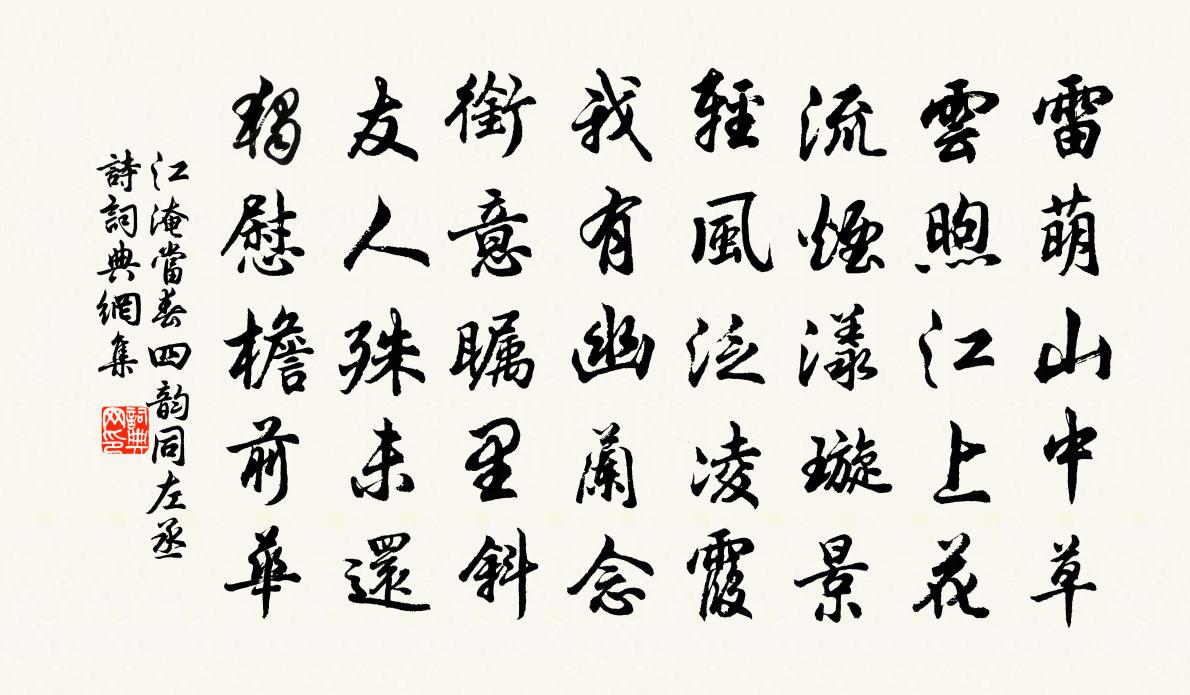 雷萌山中草
雲煦江上花
流煙漾璇景
輕風泛凌霞
我有幽蘭念
銜意矚里斜
友人殊未還
獨慰檐前華
江淹當春四韵同左丞
詩詞典網集
詞典网印